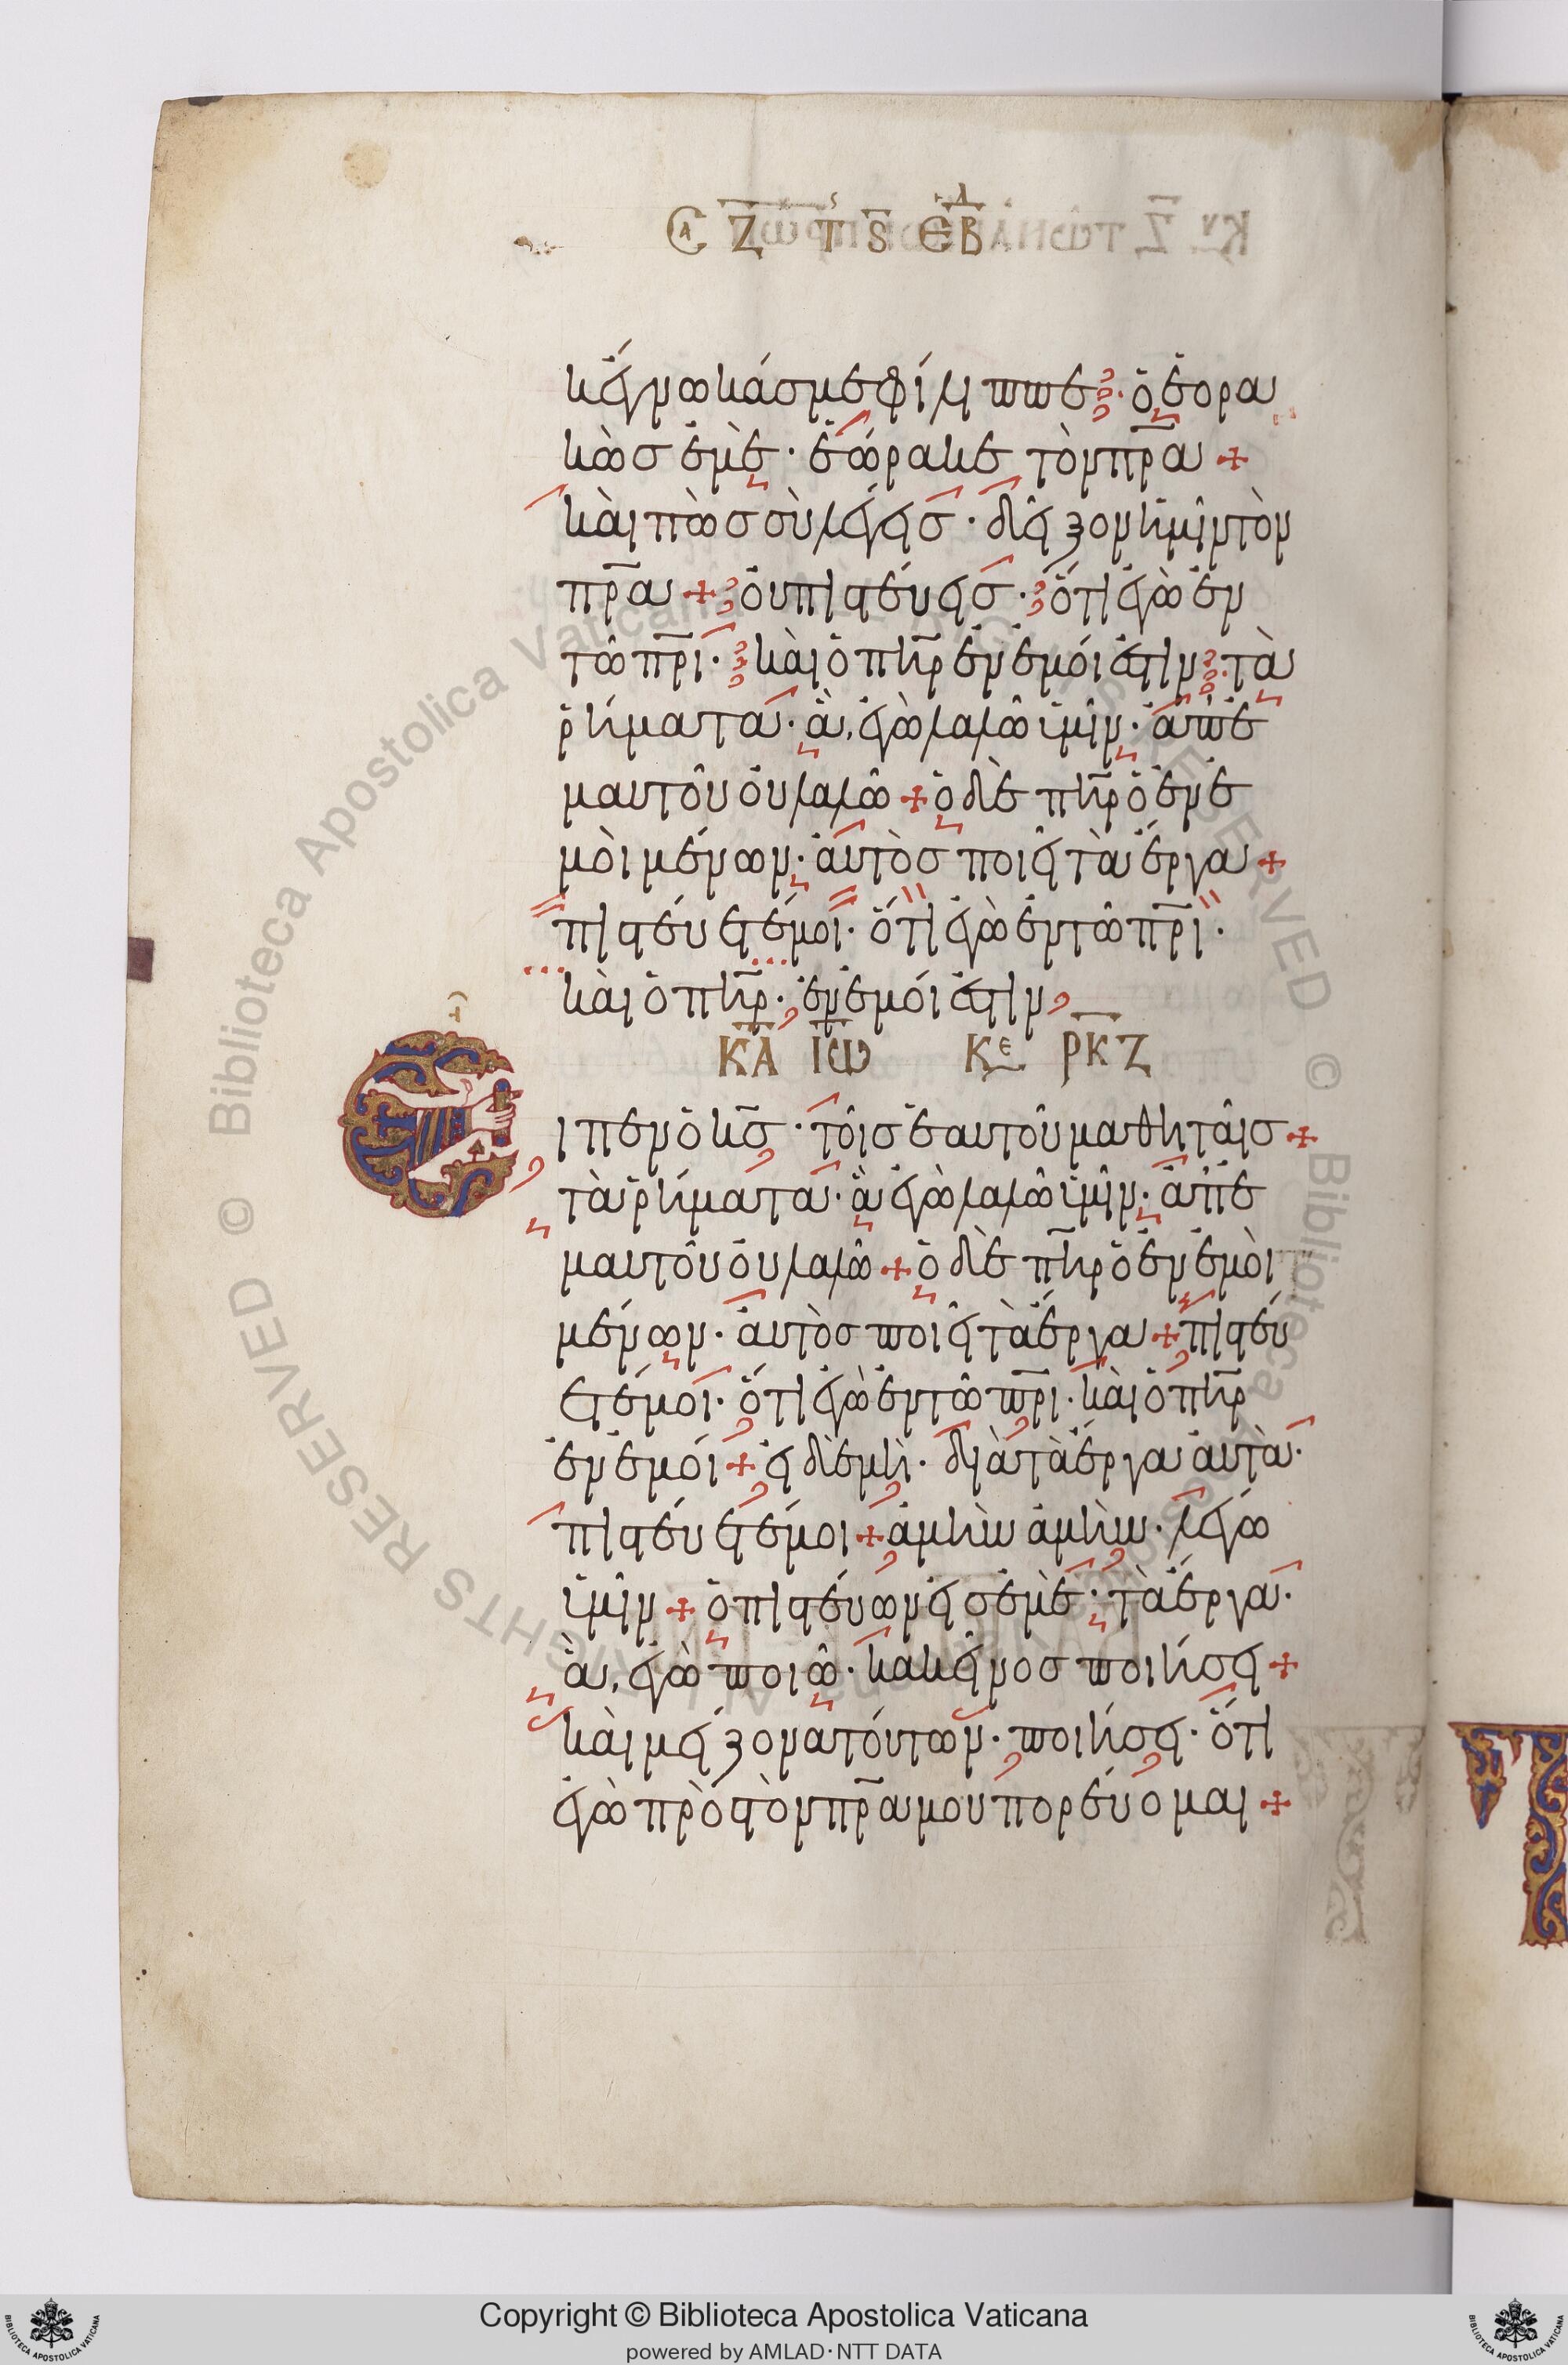 κ ἔγνωκάσ με φίλιππε · ὁ ἑορα
κὼσ ἐμὲ · ἑώρακε τὸν πρ̅α +
καὶ πῶσ σὺ λέγεισ · δεῖξον ἡμῖν τὸν
πρ̅α + οὐ πιστεύεισ · ὅτι ἐγὼ ἐν
τῶ πρ̅ι · καὶ ὁ πη̅ρ ἐν ἐμοί ἐστιν · τὰ
ῥήματα · ἃ ἐγὼ λαλῶ ὑμῖν · ἀπ ἐ
μαυτοῦ οὐ λαλῶ + ὁ δὲ πη̅ρ ὁ ἐν ἐ
μοὶ μένων · αὐτὸσ ποιεῖ τὰ ἔργα +
πιστεύετέ μοι · ὅτι ἐγὼ ἐν τῶ πρ̅ι ·
καὶ ὁ πη̅ρ · ἐν ἐμοί ἐστιν
Κ̅Α̅ Ι̅Ω̅ ΚΕ Ρ̅Κ̅Ζ̅
ιπεν ὁ κ̅σ · τοῖσ ἑαυτοῦ μαθηταῖσ +
τὰ ῥήματα · ἃ ἐγὼ λαλῶ ὑμῖν · ἀπ ἐ
μαυτοῦ οὐ λαλῶ + ὁ δὲ πη̅ρ ὁ ἐν ἐμοὶ
μένων · αὐτὸσ ποιεῖ τὰ ἔργα + πιστεύ
ετέ μοι · ὅτι ἐγὼ ἐν τῶ πρ̅ι · καὶ ὁ πη̅ρ
ἐν ἐμοί + εἰ δὲ μὴ · διὰ τὰ ἔργα αὐτὰ ·
πιστεύετέ μοι + ἀμὴν ἀμὴν · λέγω
ὑμῖν + ὁ πιστεύων εἰσ ἐμὲ · τὰ ἔργα ·
ἃ ἐγὼ ποιῶ · κακεῖνοσ ποιήσει +
καὶ μείζονα τούτων · ποιήσει · ὅτι
ἐγὼ πρὸσ τὸν πρ̅α μου πορεύομαι +
Copyright © Biblioteca Apostolica Vaticana
powered by AMLAD·NTT DATA